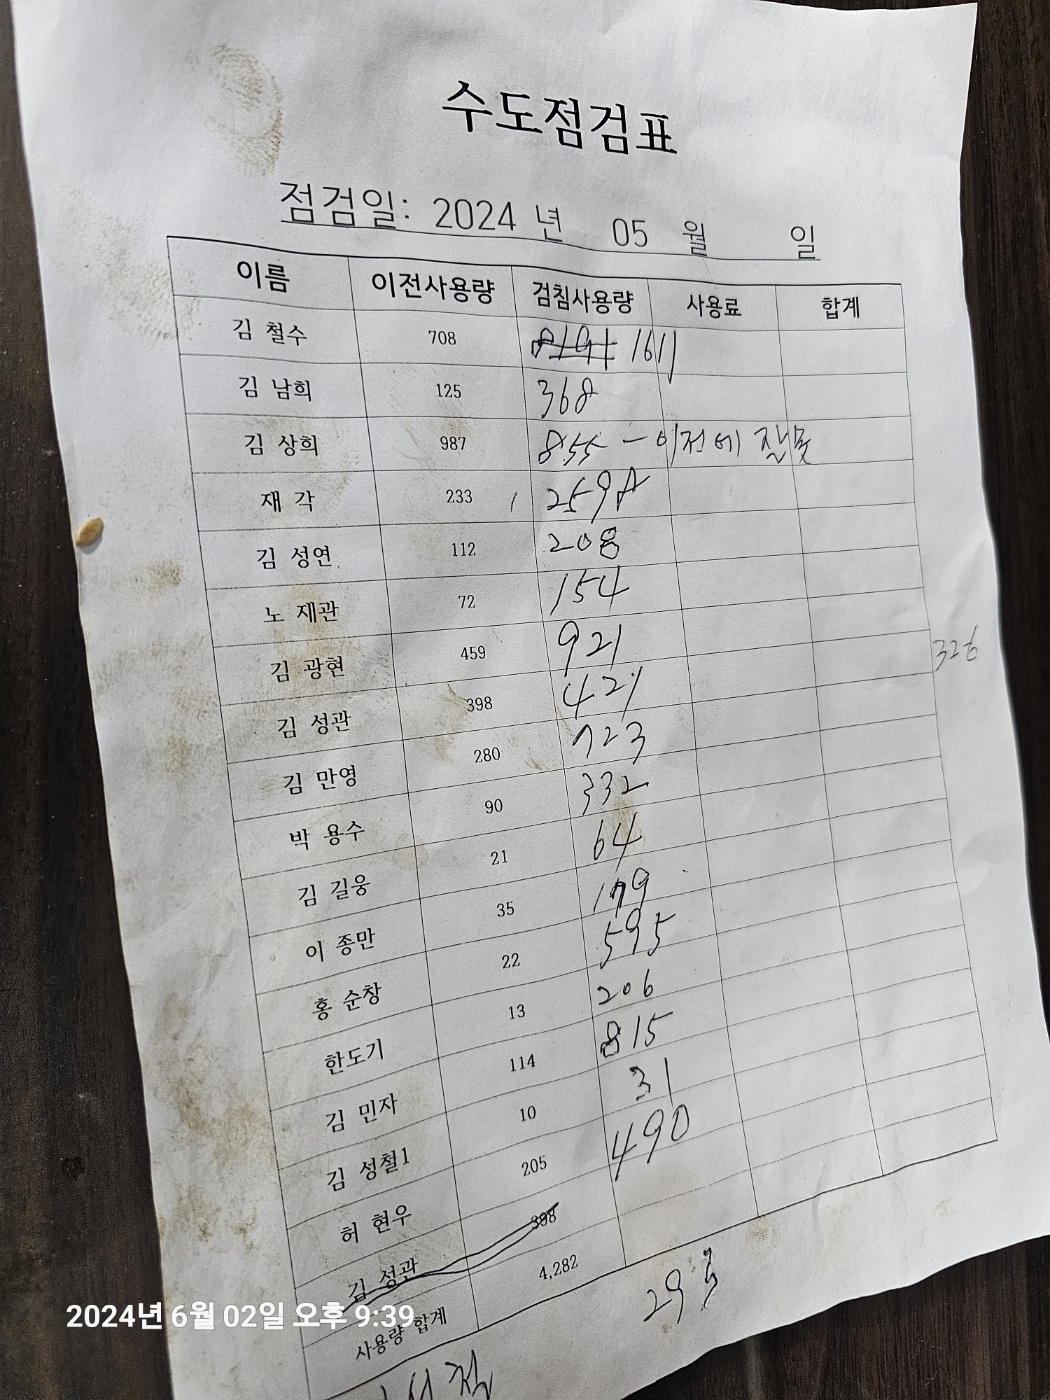 수도점검표
점검일: 2024 년 05 월 일
이름 이전사용량 검침사용량 사용료 합계
김 철수 708 1611
김 남희 125 368
김 상희 987 855 - 이전에 잘못
재 각 233 259
김 성연 112 208
노 재관 72 154
김 광현 459 921
326
김 성관 398 421
김 만영 280 723
박 용수 90 332
김 길웅 21 64
이 종만 35 179
홍 순창 22 595
한도기 13 206
김 민자 114 815
김 성철1 10 31
허 현우 205 490
김 성관 398
사용량 합계 4,282
293
2024년 6월 02일 오후 9:39